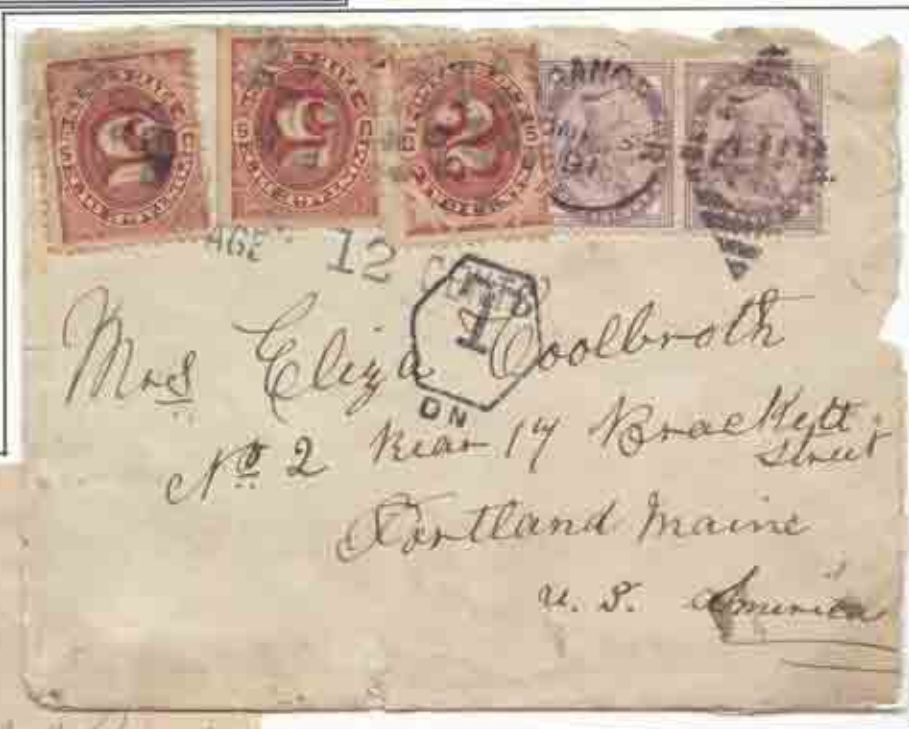 5
5
2
BANGOR
91
12 CENTS
T
Mrs Eliza Coolbroth
No 2 Rear 17 Brackett
Street
Portland Maine
U. S. America